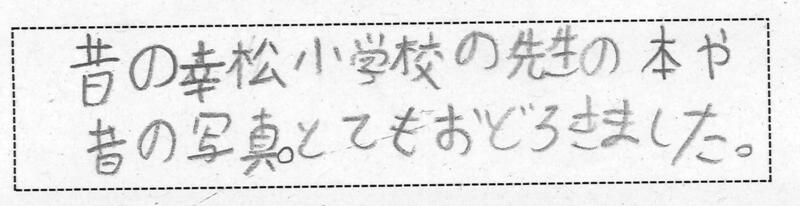 昔の幸松小学校の先生の本や
昔の写真。とてもおどろきました。